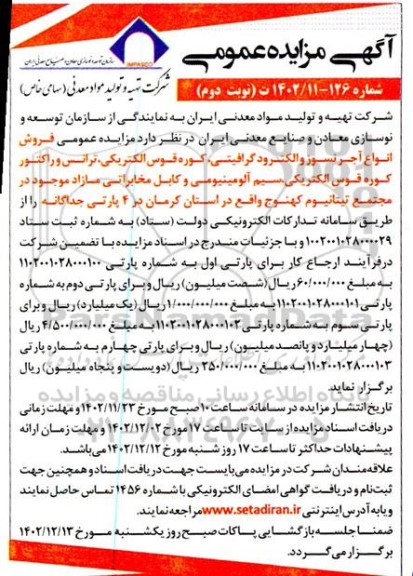 آگهی مزایده عمومی
سازمان توسعه و نوسازی معادن و صنایع معدنی ایران
شرکت تهیه و تولید مواد معدنی (سهامی خاص)
شماره ۱۲۶-۱۴۰۲/۱۱ ت (نوبت دوم)
شرکت تهیه و تولید مواد معدنی ایران به نمایندگی از سازمان توسعه و
نوسازی معادن و صنایع معدنی ایران در نظر دارد مزایده عمومی فروش
انواع آجر نسوز و الکترود گرافیتی، کوره قوس الکتریکی، ترانس و رآکتور
کوره قوس الکتریکی، سیم آلومینیومی و کابل مخابراتی مازاد موجود در
مجتمع تیتانیوم کهنوج واقع در استان کرمان در ۴ پارتی جداگانه را از
طریق سامانه تدارکات الکترونیکی دولت (ستاد) به شماره ثبت ستاد
۱۰۰۲۰۰۱۰۲۸۰۰۰۰۲۹ و با جزئیات مندرج در اسناد مزایده با تضمین شرکت
در فرآیند ارجاع کار برای پارتی اول به شماره پارتی ۱۱۰۲۰۰۱۰۲۸۰۰۰۱۰۰
به مبلغ ۶۰/۰۰۰/۰۰۰ ریال (شصت میلیون) ریال و برای پارتی دوم به شماره
پارتی ۱۱۰۲۰۰۱۰۲۸۰۰۰۱۰۱ به مبلغ ۱/۰۰۰/۰۰۰/۰۰۰ ریال (یک میلیارد) ریال و برای
پارتی سوم به شماره پارتی ۱۱۰۲۰۰۱۰۲۸۰۰۰۱۰۲ به مبلغ ۴/۵۰۰/۰۰۰/۰۰۰ ریال
(چهار میلیارد و پانصد میلیون) ریال و برای پارتی چهارم به شماره پارتی
۱۱۰۲۰۰۱۰۲۸۰۰۰۱۰۳ به مبلغ ۲۵۰/۰۰۰/۰۰۰ ریال (دویست و پنجاه میلیون) ریال
برگزار نماید.
تاریخ انتشار مزایده در سامانه ساعت ۱۰ صبح مورخ ۱۴۰۲/۱۱/۲۳ و مهلت زمانی
دریافت اسناد مزایده از سایت تا ساعت ۱۷ مورخ ۱۴۰۲/۱۲/۰۲ و مهلت زمان ارائه
پیشنهادات حداکثر تا ساعت ۱۷ روز شنبه مورخ ۱۴۰۲/۱۲/۱۲ می‌باشد.
علاقه‌مندان شرکت در مزایده می‌بایست جهت دریافت اسناد و همچنین جهت
ثبت نام و دریافت گواهی امضای الکترونیکی با شماره ۱۴۵۶ تماس حاصل نمایند
و یا به آدرس اینترنتی www.setadiran.ir مراجعه نمایند.
ضمنا جلسه بازگشایی پاکات صبح روز یکشنبه مورخ ۱۴۰۲/۱۲/۱۳
برگزار می‌گردد.
پایگاه اطلاع رسانی مناقصه و مزایده